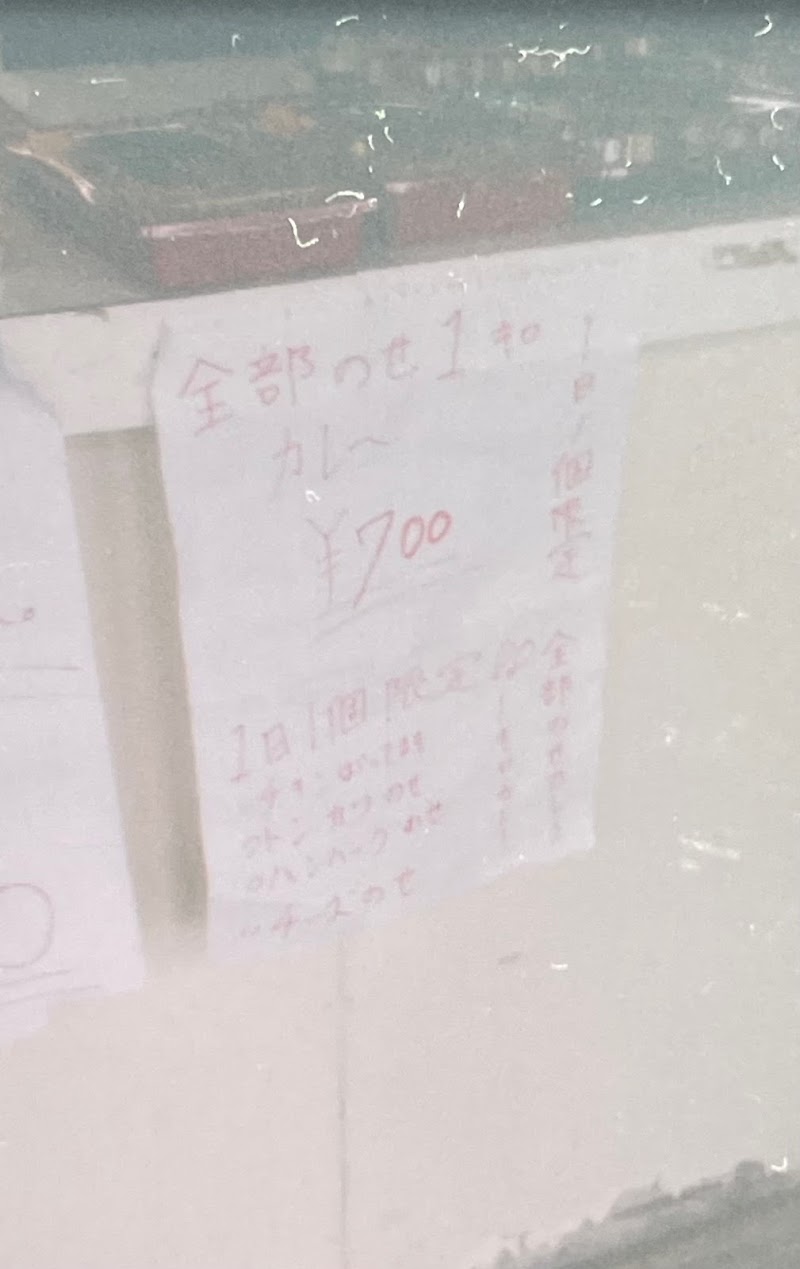 全部のせ1キロ
カレー
¥700
1日1個限定
1日1個限定
トンカツのせ
ハンバーグのせ
チーズのせ
全部のせカレー